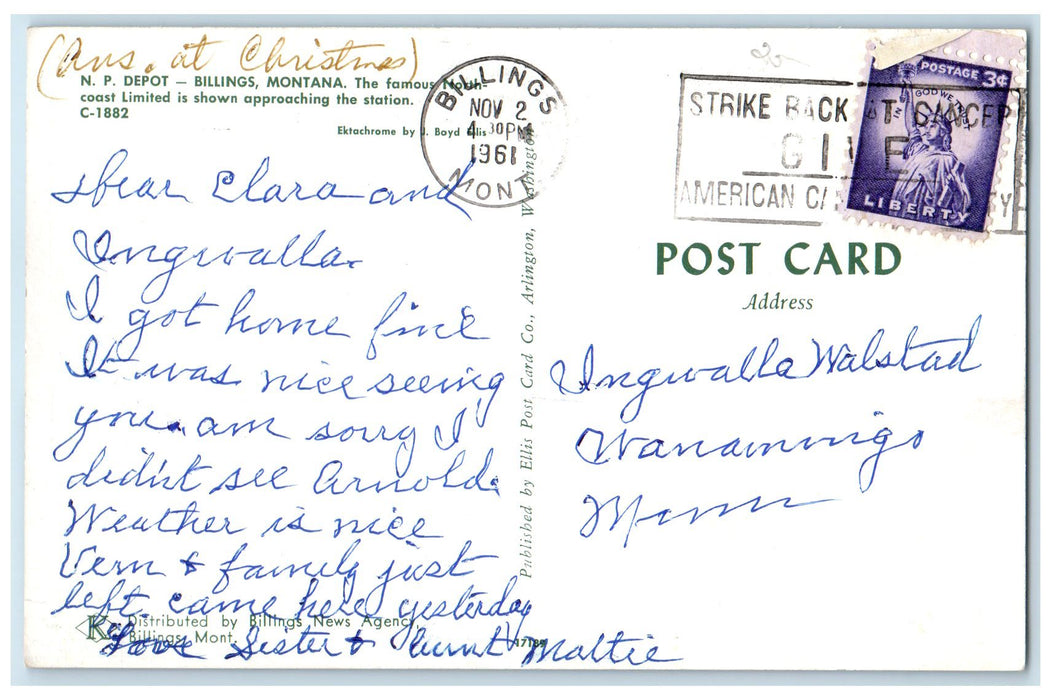 (Ans. at Christmas)
N. P. DEPOT — BILLINGS, MONTANA. The famous North-
coast Limited is shown approaching the station.
C-1882
Ektachrome by J. Boyd Ellis
Dear Clara and
Ingwalla.
I got home fine
It was nice seeing
you. am sorry I
didn't see Arnold.
Weather is nice
Vern & family just
left came here yesterday
Love Sister & Aunt Mattie
Distributed by Billings News Agency,
Billings, Mont.
K
17189
Published by Ellis Post Card Co., Arlington, Washington
BILLINGS
NOV 2
4 30 PM
1961
MONT
STRIKE BACK AT CANCER
GIVE
AMERICAN CA Y
POSTAGE 3¢
IN GOD WE TRUST
LIBERTY
POST CARD
Address
Ingwalla Walstad
Wanammigo
Minn